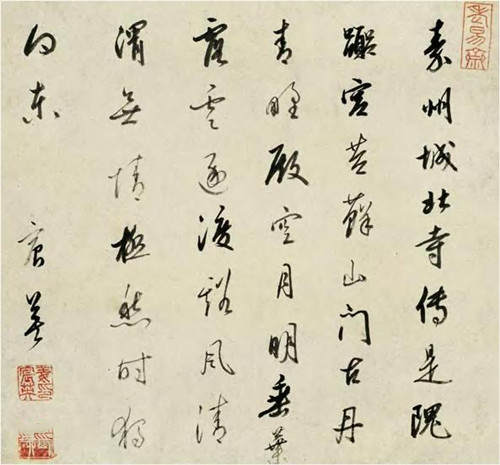 秦州城北寺傳是隗
囂宮苔蘚山門古丹
青野殿空月明垂葉
露雲逐渡谿風清
渭無情極愁時獨
向東
宸英
老易齋